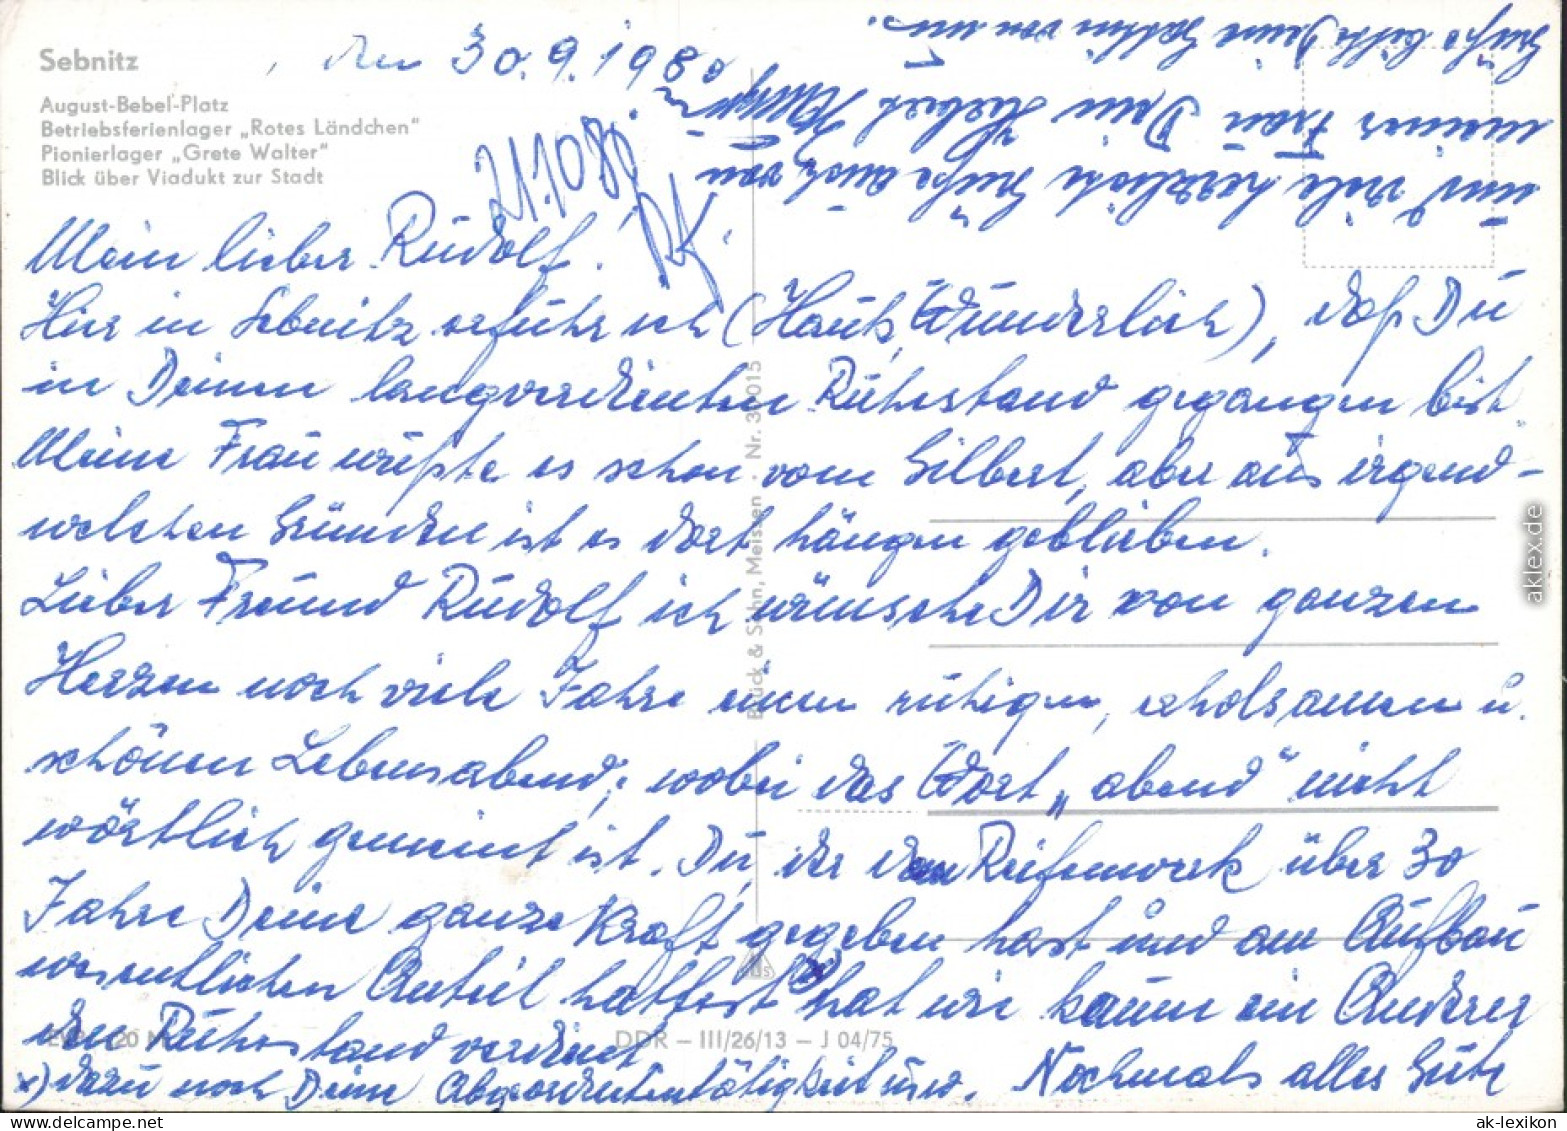 Sebnitz
, den 30.9.1980
August-Bebel-Platz
Betriebsferienlager „Rotes Ländchen"
Pionierlager „Grete Walter"
Blick über Viadukt zur Stadt
Mein lieber Rudolf!
Hier in Sebnitz erfuhr ich (Hauk, Wunderlich), daß Du
in Deinen langverdienten Ruhestand gegangen bist.
Meine Frau wußte es schon vom Gilbert, aber aus irgend-
welchen Gründen ist es dort hängen geblieben.
Lieber Freund Rudolf ich wünsche Dir von ganzen
Herzen noch viele Jahre einen ruhigen, erholsamen u.
schönen Lebensabend; wobei das Wort „abend" nicht
wörtlich gemeint ist. Du, der dem Reifenwerk über 30
Jahre Deine ganze Kraft gegeben hast und am Aufbau
wesentlichen Anteil hattest x) hat wie kaum ein Anderer
den Ruhestand verdient
x) dazu noch Deine Abgeordnetentätigkeit usw. Nochmals alles Gute
und viele herzliche Grüße auch von
meiner Frau Dein Herbert
Grüße bitte Deine Gattin von uns.
Brück & Sohn, Meissen · Nr. 30015
DDR – III/26/13 – J 04/75
aklex.de
ak-lexikon